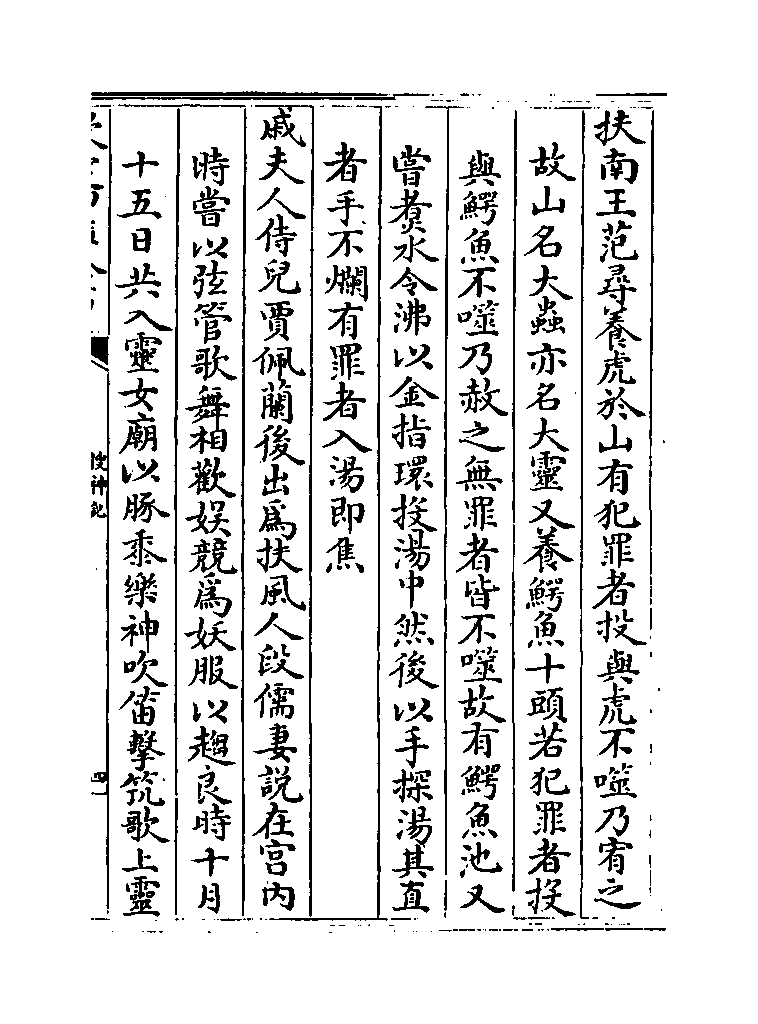 扶南王范尋養虎於山有犯罪者投與虎不噬乃宥之
故山名大蟲亦名大靈又養鰐魚十頭若犯罪者投
與鰐魚不噬乃赦之無罪者皆不噬故有鰐魚池又
嘗煮水令沸以金指環投湯中然後以手探湯其直
者手不爛有罪者入湯即焦
戚夫人侍兒賈佩蘭後出為扶風人段儒妻說在宮内
時嘗以弦管歌舞相歡娱競為妖服以趨良時十月
十五日共入靈女廟以豚黍樂神吹笛擊筑歌上靈
搜神記